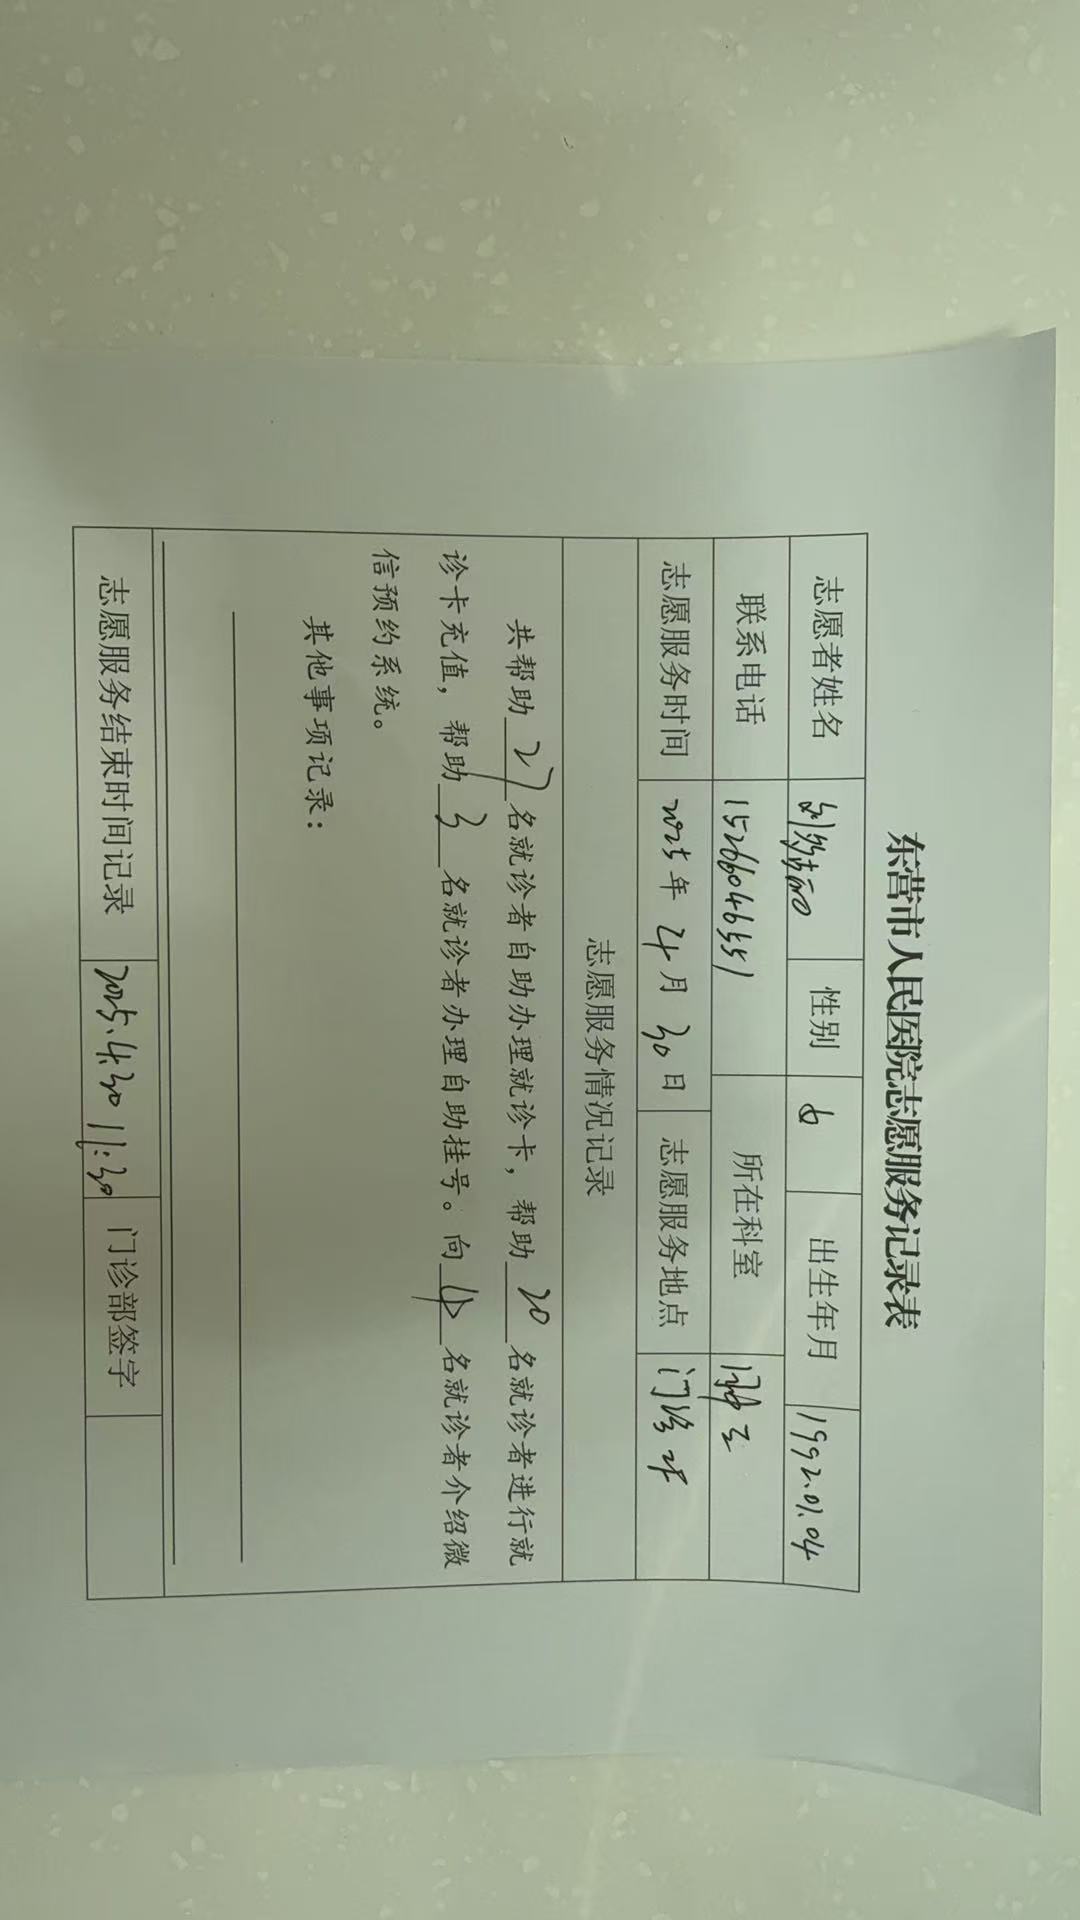 东营市人民医院志愿服务记录表
志愿者姓名 性别 女 出生年月 1992.01.04
联系电话 15266046551 所在科室
志愿服务时间 2025年 4月 30日 志愿服务地点 门诊
志愿服务情况记录
共帮助 27 名就诊者自助办理就诊卡，帮助 20 名就诊者进行就
诊卡充值，帮助 3 名就诊者办理自助挂号。向 4 名就诊者介绍微
信预约系统。
其他事项记录：
志愿服务结束时间记录 2025.4.30 11:30 门诊部签字